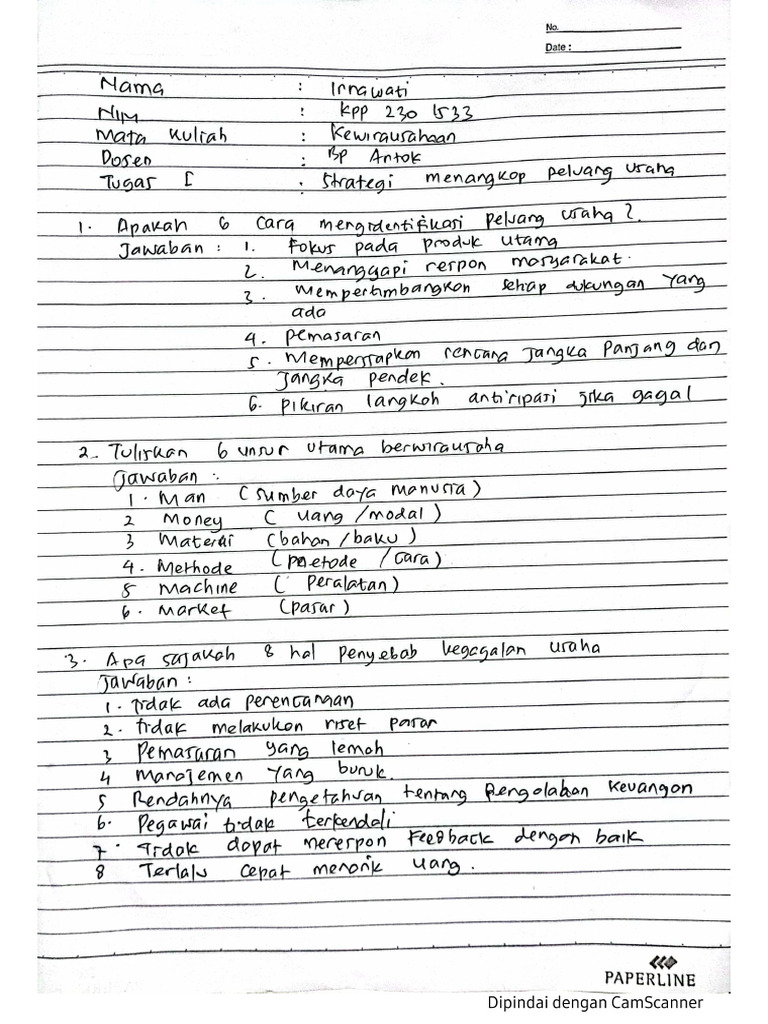 No.
Date :
Nama : Irnawati
NIM : KPP 230 1533
Mata Kuliah : Kewirausahaan
Dosen : Bp Antok
Tugas I : Strategi menangkap peluang usaha
1. Apakah 6 Cara mengidentifikasi peluang usaha ?
Jawaban : 1. Fokus pada produk utama
2. Menanggapi respon masyarakat.
3. Mempertimbangkan setiap dukungan yang
ada
4. pemasaran
5. Mempersiapkan rencana jangka panjang dan
jangka pendek.
6. pikiran langkah antisipasi jika gagal
2. Tuliskan 6 unsur utama berwirausaha
Jawaban :
1. Man (sumber daya manusia)
2 Money (uang/modal)
3 Material (bahan/baku)
4. Methode (metode/cara)
5 Machine (peralatan)
6. Market (pasar)
3. Apa sajakah 8 hal penyebab kegagalan usaha
Jawaban :
1. Tidak ada perencangan
2. tidak melakukan riset pasar
3 Pemasaran yang lemah
4 Manajemen yang buruk.
5 Rendahnya pengetahuan tentang pengolahan keuangan
6. Pegawai tidak terkendali
7. Tidak dapat merespon Feedback dengan baik
8 Terlalu cepat menarik uang.
PAPERLINE
Dipindai dengan CamScanner